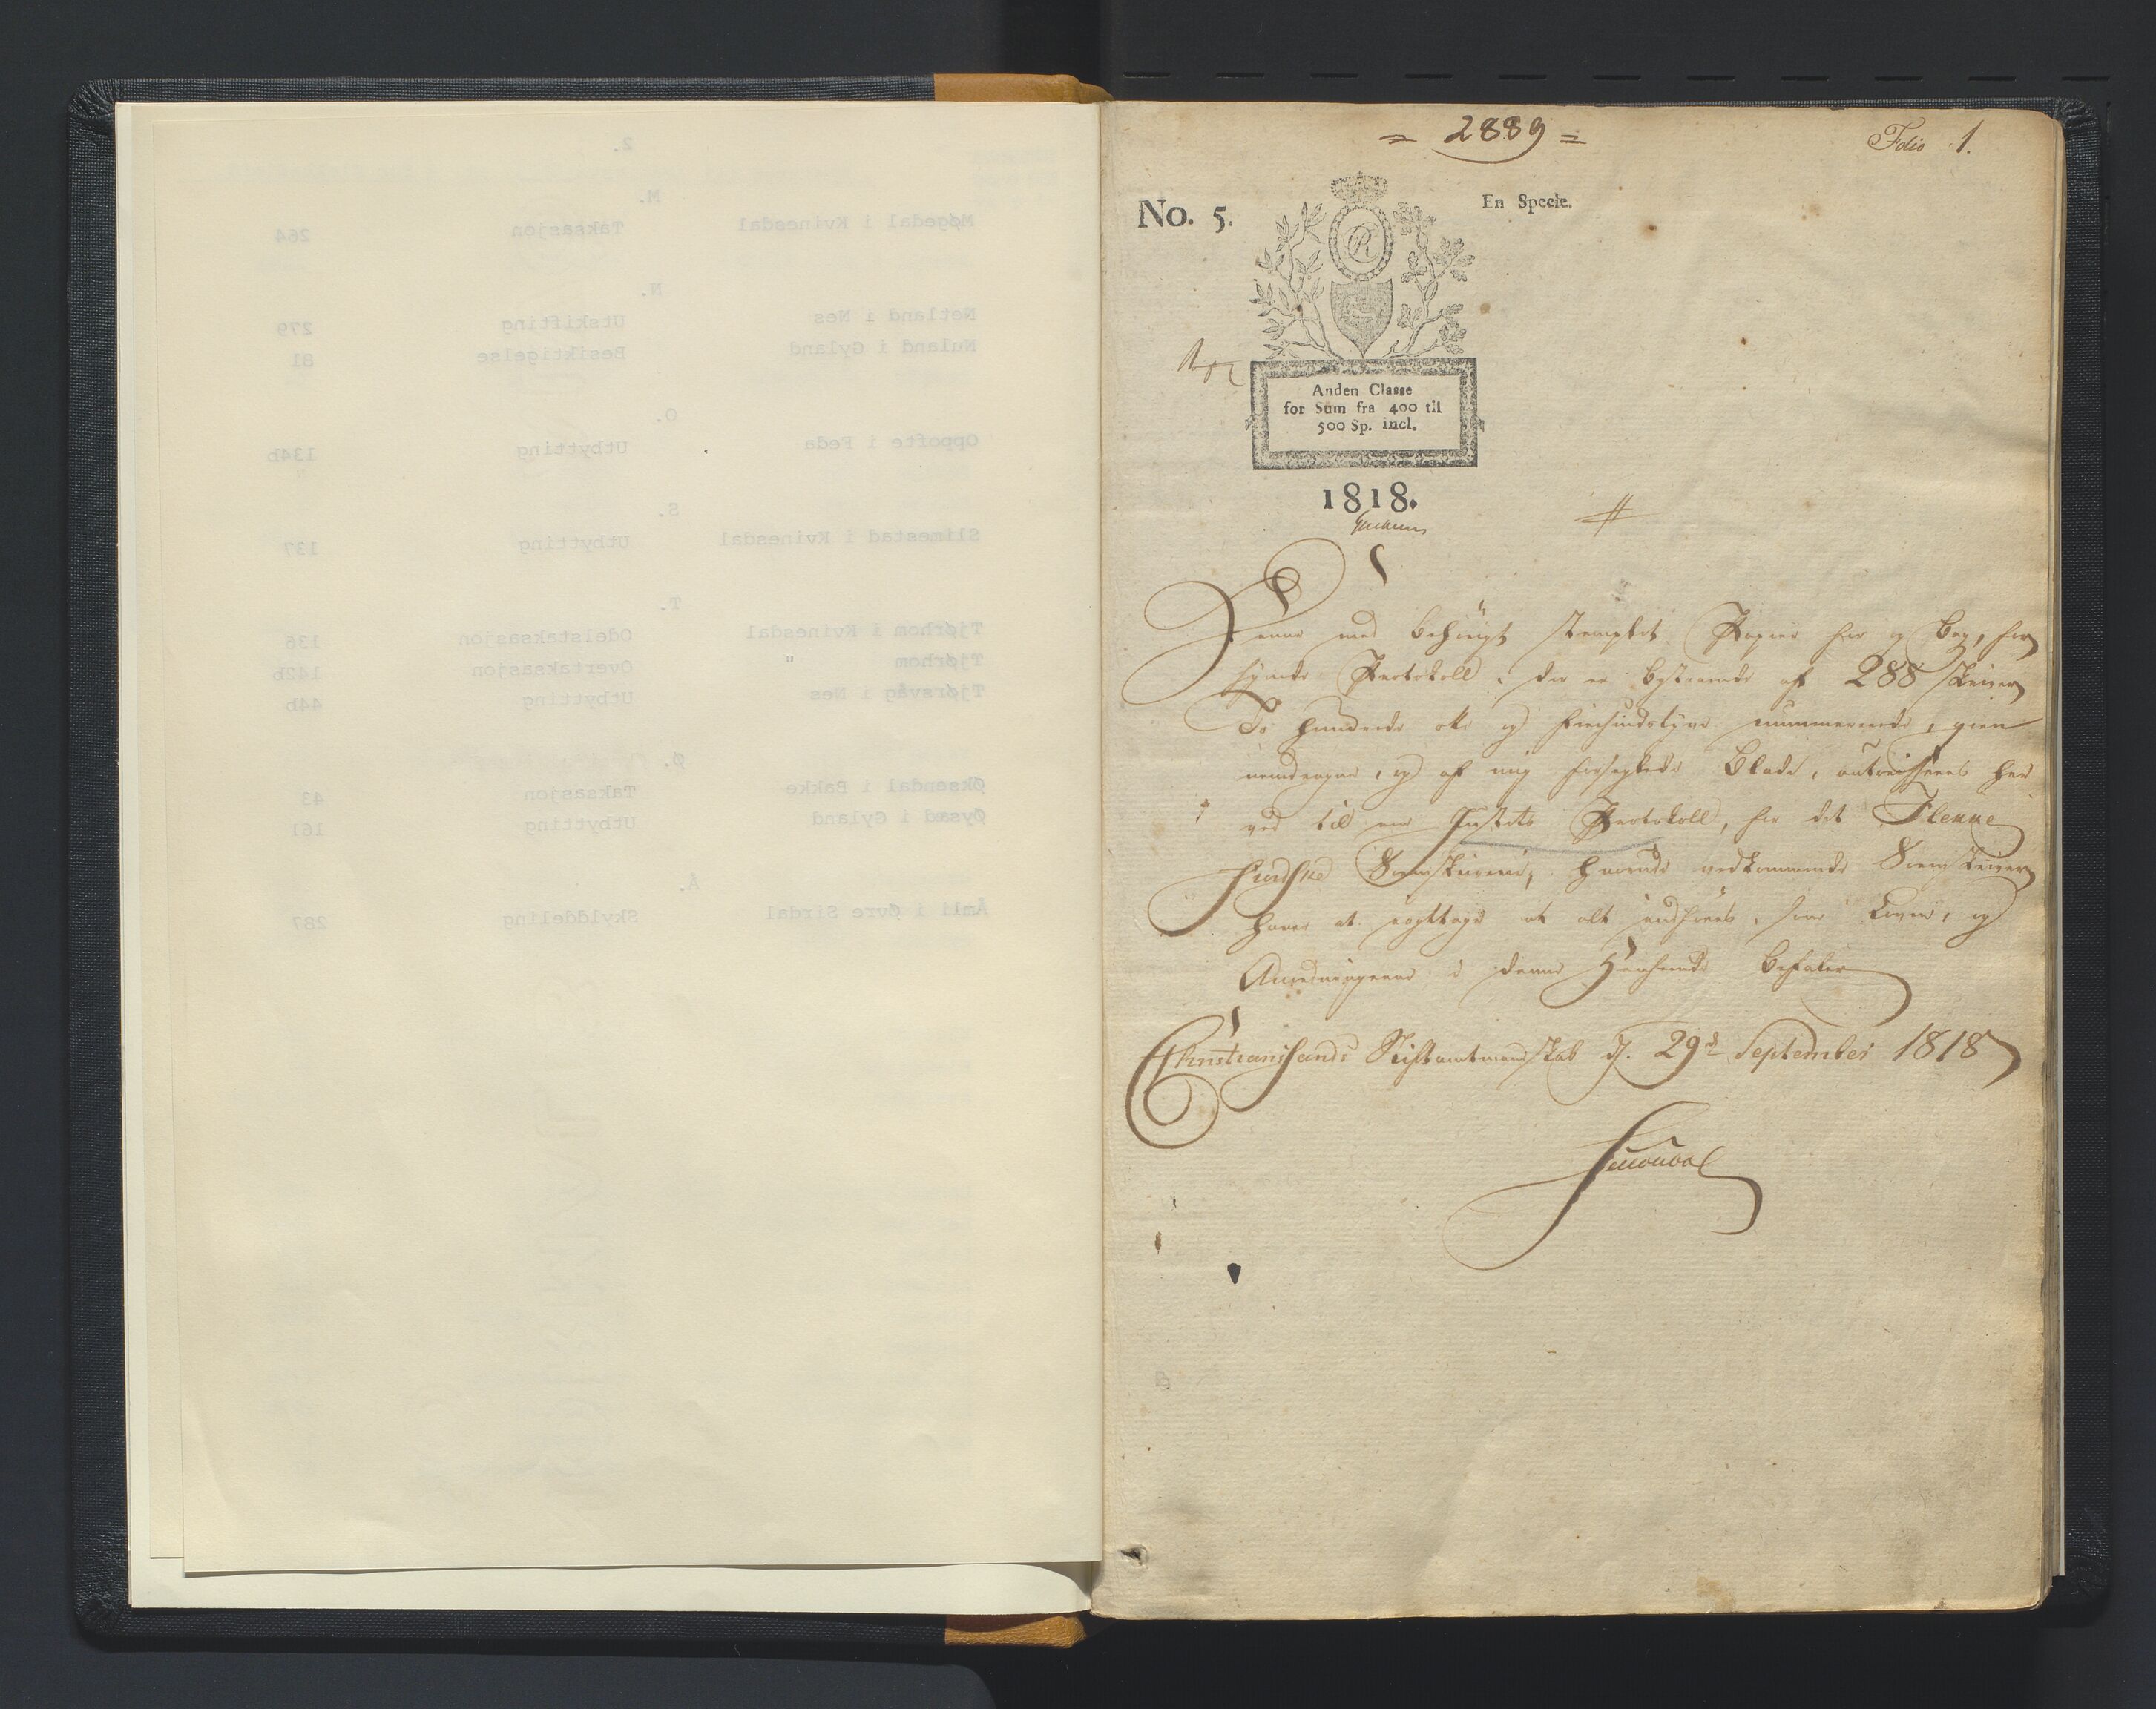 2.
M.
Møgedal i Kvinesdal Taksasjon 264
N.
Netland i Nes Utskifting 279
Nuland i Gyland Besiktigelse 81
O.
Oppofte i Feda Utbytting 134b
S.
Slimestad i Kvinesdal Utbytting 137
T.
Tjørhom i Kvinesdal Odelstaksasjon 136
Tjørhom " Overtaksasjon 142b
Tjørsvåg i Nes Utbytting 44b
Ø.
Øksendal i Bakke Taksasjon 43
Øysæd i Gyland Utbytting 161
Å.
Åmli i Øvre Sirdal Skylddeling 287
= 2889 =
Folio 1.
No. 5.
En Specie.
Anden Classe
for Sum fra 400 til
500 Sp. incl.
1818.
Denne med behørigt stemplet Papier for og bag, for
synede Protokoll, der er bestaaende af 288 skriver
To hundrede otte og Fiirsindstyve nummererede, gien
nemdragne, og af mig forseglede Blade, autoriseres her
ved til en Justits Protokoll, for det Flekke
fiordske Sorenskriverie, hvorved vedkommende Sorenskriver
haver at iagttage at alt indføres, som Loven, og
Anordningerne i denne Henseende befaler
Christiansands Stiftamtmandskab d. 29d September 1818